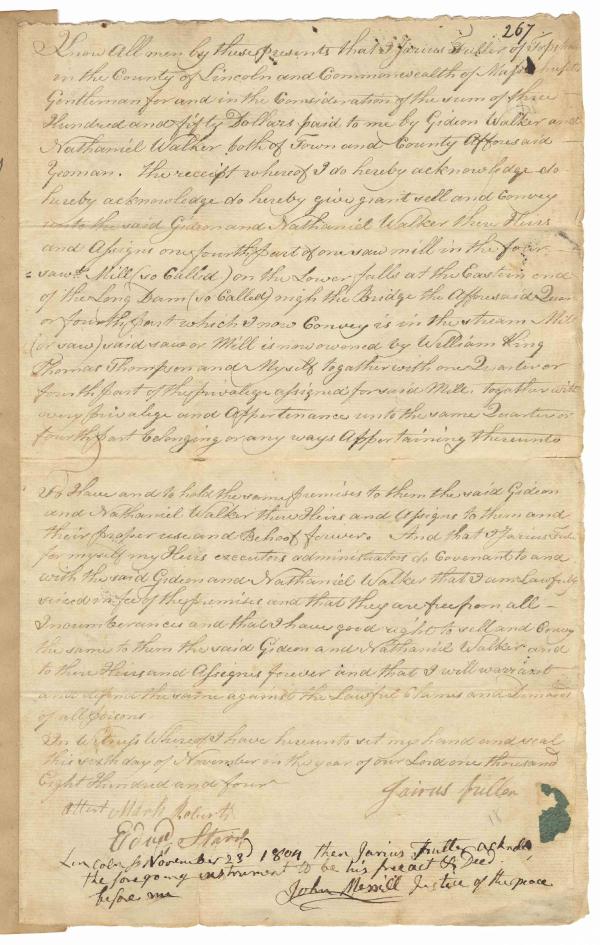 267
Know All men by these presents that I Jarius Fuller of Topsham
in the County of Lincoln and Commonwealth of Massachusetts
Gentleman for and in the Consideration of the sum of three
Hundred and fifty Dollars paid to me by Gideon Walker and
Nathaniel Walker both of Town and County Afforesaid
Yeoman. The receipt whereof I do hereby acknowledge do
hereby acknowledge do hereby give grant sell and Convey
unto the said Gideon and Nathaniel Walker there Heirs
and Assigns one fourth part of one saw mill in the four
saw Mill (so Called) on the Lower falls at the Eastern end
of the Long Dam (so Called) nigh the Bridge the Afforesaid Quar
or fourth part which I now Convey is in the stream Mill
(or saw) said saw or Mill is now owned by William King
Thomas Thompson and Myself together with one Quarter or
fourth part of the privalige assigned for said Mill together with
every privalige and Appertenance unto the same Quarter or
fourth part belonging or any ways Appertaining thereunto
To Have and to hold the same premises to them the said Gideon
and Nathaniel Walker there Heirs and Assigns to them and
their proper use and Behoof forever. And that I Jarius Fuller
for myself my Heirs executors administrators do Covenant to and
with the said Gideon and Nathaniel Walker that I am Lawfully
seized in fee of the premises and that they are free from all
Incumberances and that I have good right to sell and Convey
the same to them the said Gideon and Nathaniel Walker and
to there Heirs and Assigns forever and that I will warrant
and defend the same against the Lawful Claims and Demands
of all persons
In Witness Whereof I have hereunto set my hand and seal
this sixth day of November in the year of our Lord one thousand
Eight Hundred and four
Jairus Fuller
Attest
Lincoln ss November 23d 1804 then Jarius Fuller acknd
the foregoing instrument to be his free act & Deed
before me John Merrill Justice of the peace